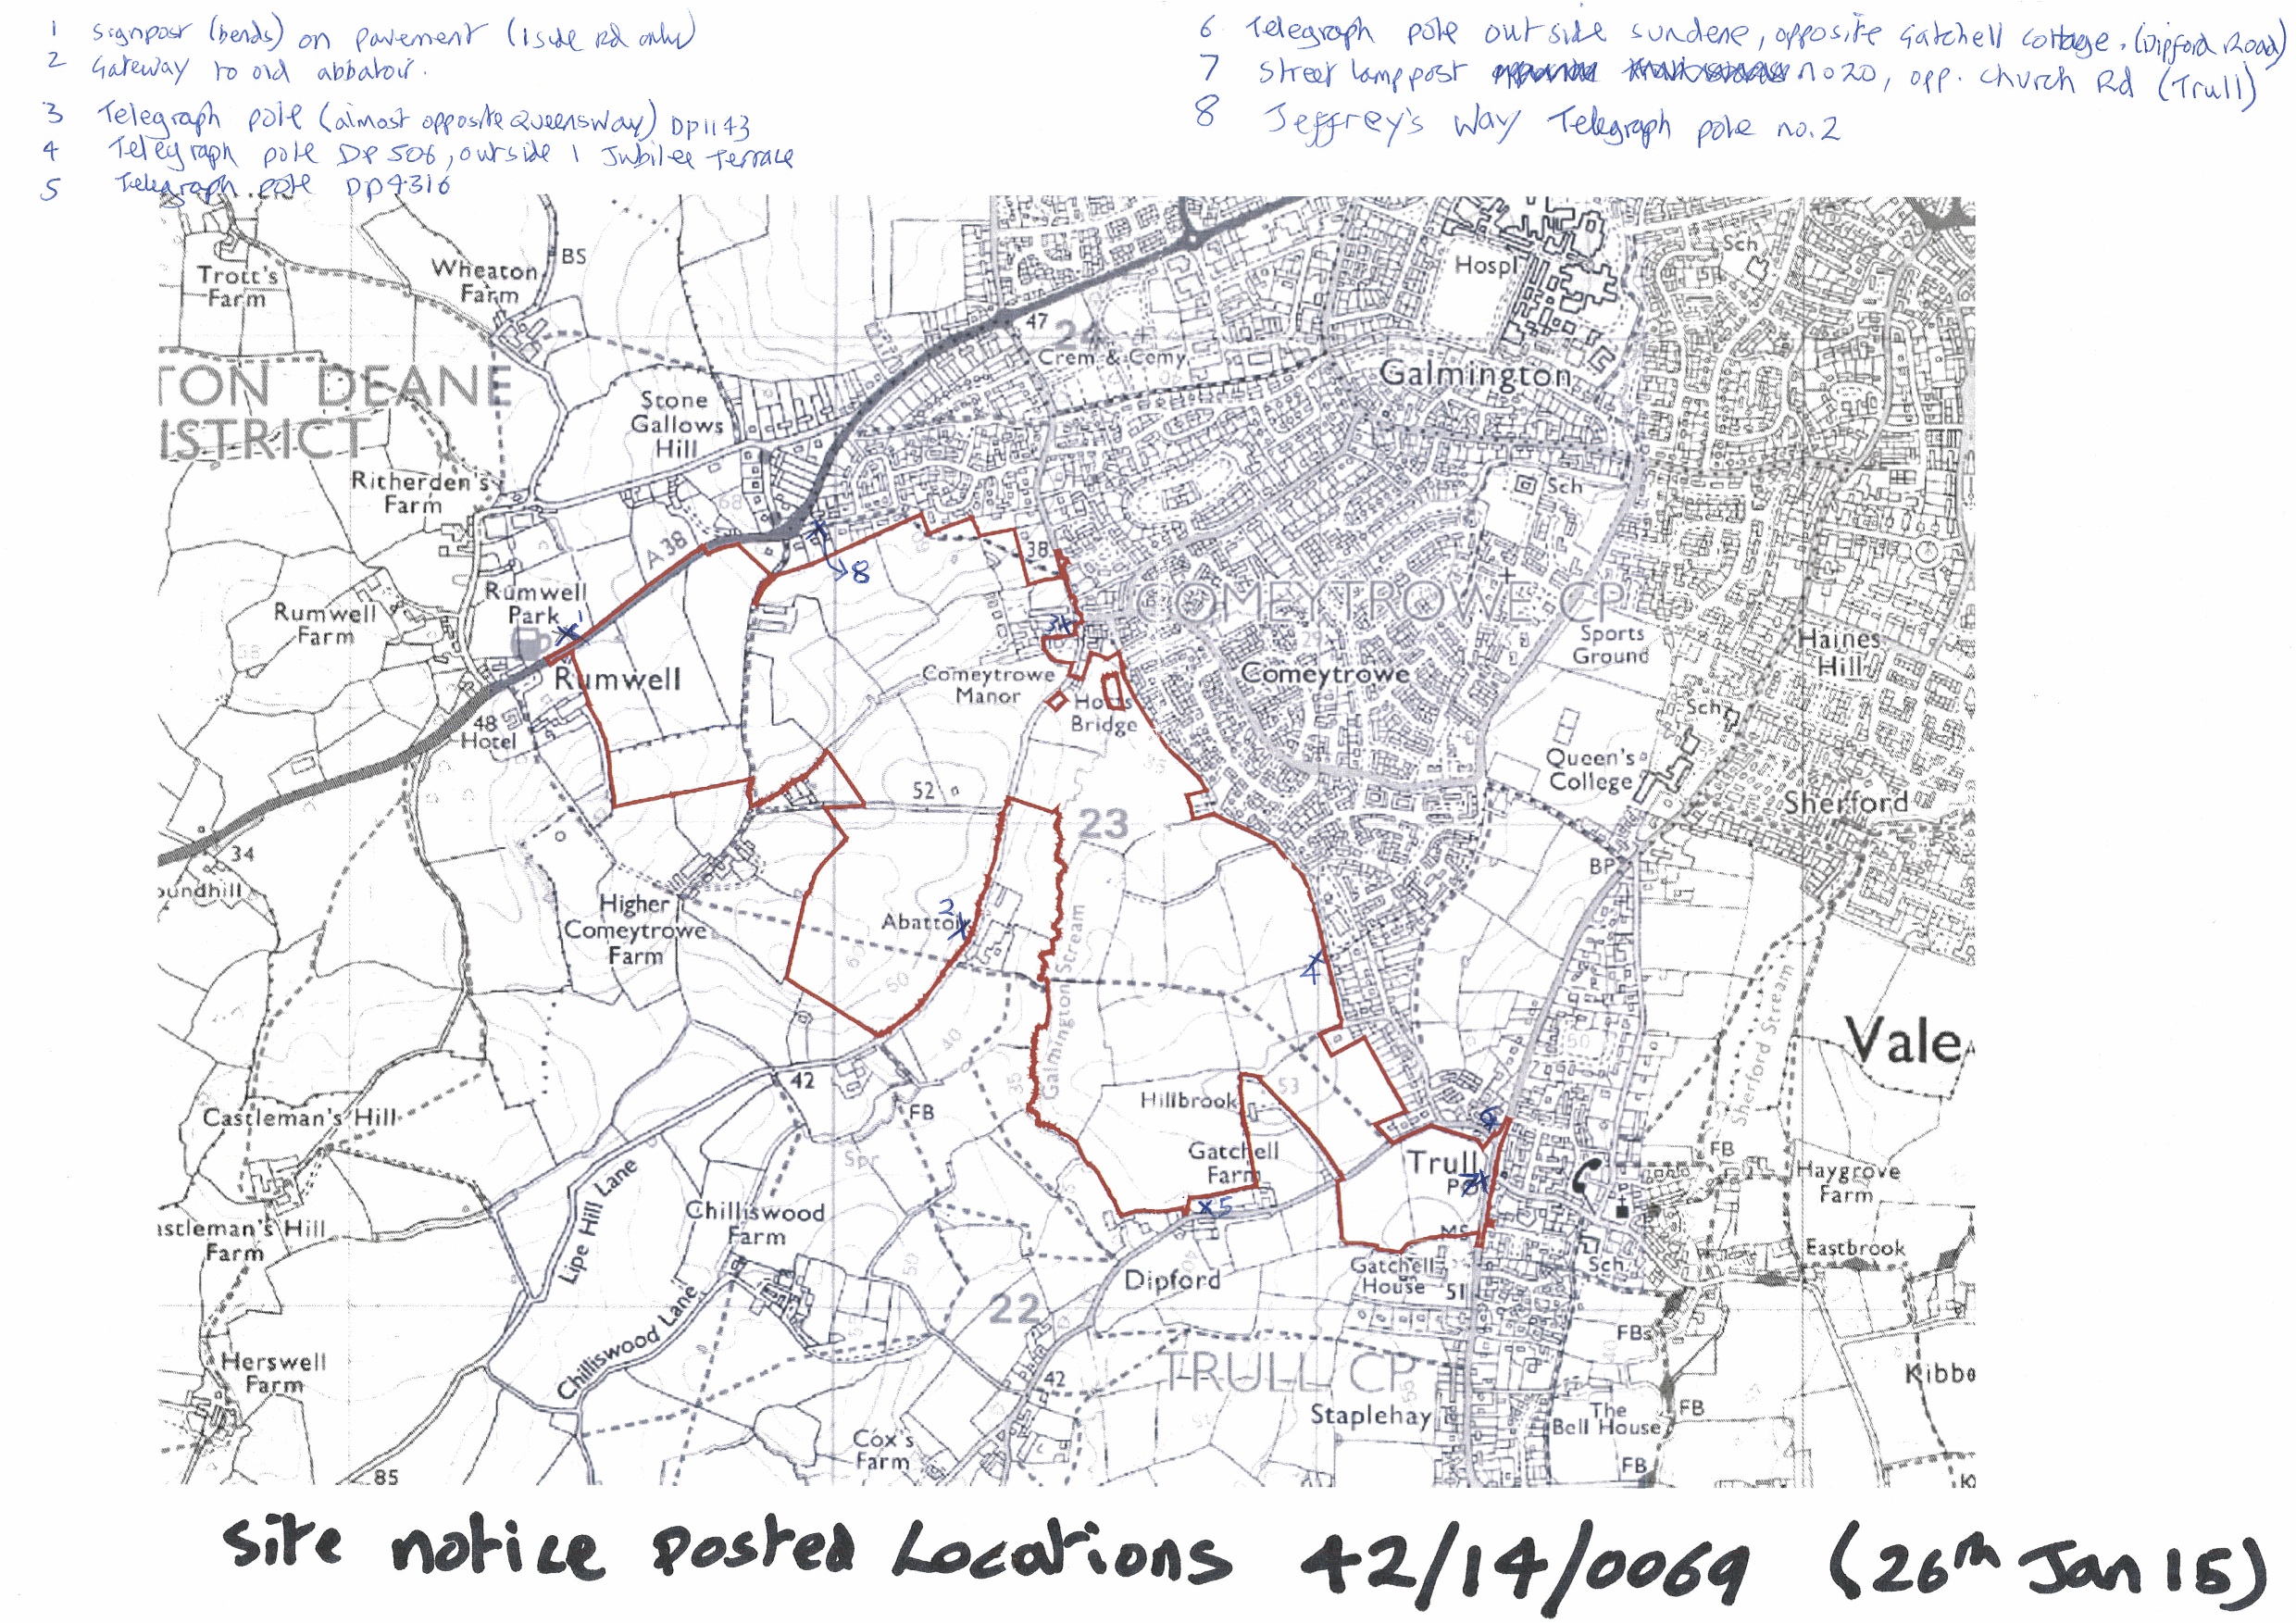 1 Signpost (bends) on pavement (1 side Rd only)
2 Gateway to old abbatoir.
3 Telegraph pole (almost opposite Queensway) DP1143
4 Telegraph pole DP 506, outside 1 Jubilee Terrace
5 Telegraph pole DP4316
6 Telegraph pole outside sundene, opposite Gatchell Cottage. (Dipford Road)
7 Street lamppost no 20, opp. Church Rd (Trull)
8 Jeffrey's Way Telegraph pole no.2
Trott's
Farm
Wheaton
Farm
BS
Hospl
Sch
47
24
Crem & Cemy
Galmington
TON DEANE
ISTRICT
Stone
Gallows
Hill
Ritherden's
Farm
Sch
68
A 38
38
8
Rumwell
Park
1
Rumwell
Farm
58
COMEYTROWE CP
3
29
Sports
Ground
Haines
Hill
Rumwell
Comeytrowe
Manor
Comeytrowe
Bridge
48
Hotel
Sch
35
Queen's
College
52
23
Sherford
34
oundhill
BP
Higher
Comeytrowe
Farm
Abattoir
2
60
50
4
Galmington Stream
Sherford Stream
40
50
Vale
35
42
FB
Hillbrook
53
Castleman's Hill
6
Spr
Gatchell
Farm
Trull
P
7
FB
Haygrove
Farm
Lipe Hill Lane
Chilliswood
Farm
5
MS
astleman's Hill
Farm
50
Dipford
Gatchell
House
51
Sch
Eastbrook
22
FBs
Chilliswood Lane
Herswell
Farm
42
TRULL CP
55
Kibbe
Staplehay
The
Bell House
FB
Cox's
Farm
FB
85
K
Site notice posted Locations 42/14/0069 (26th Jan 15)